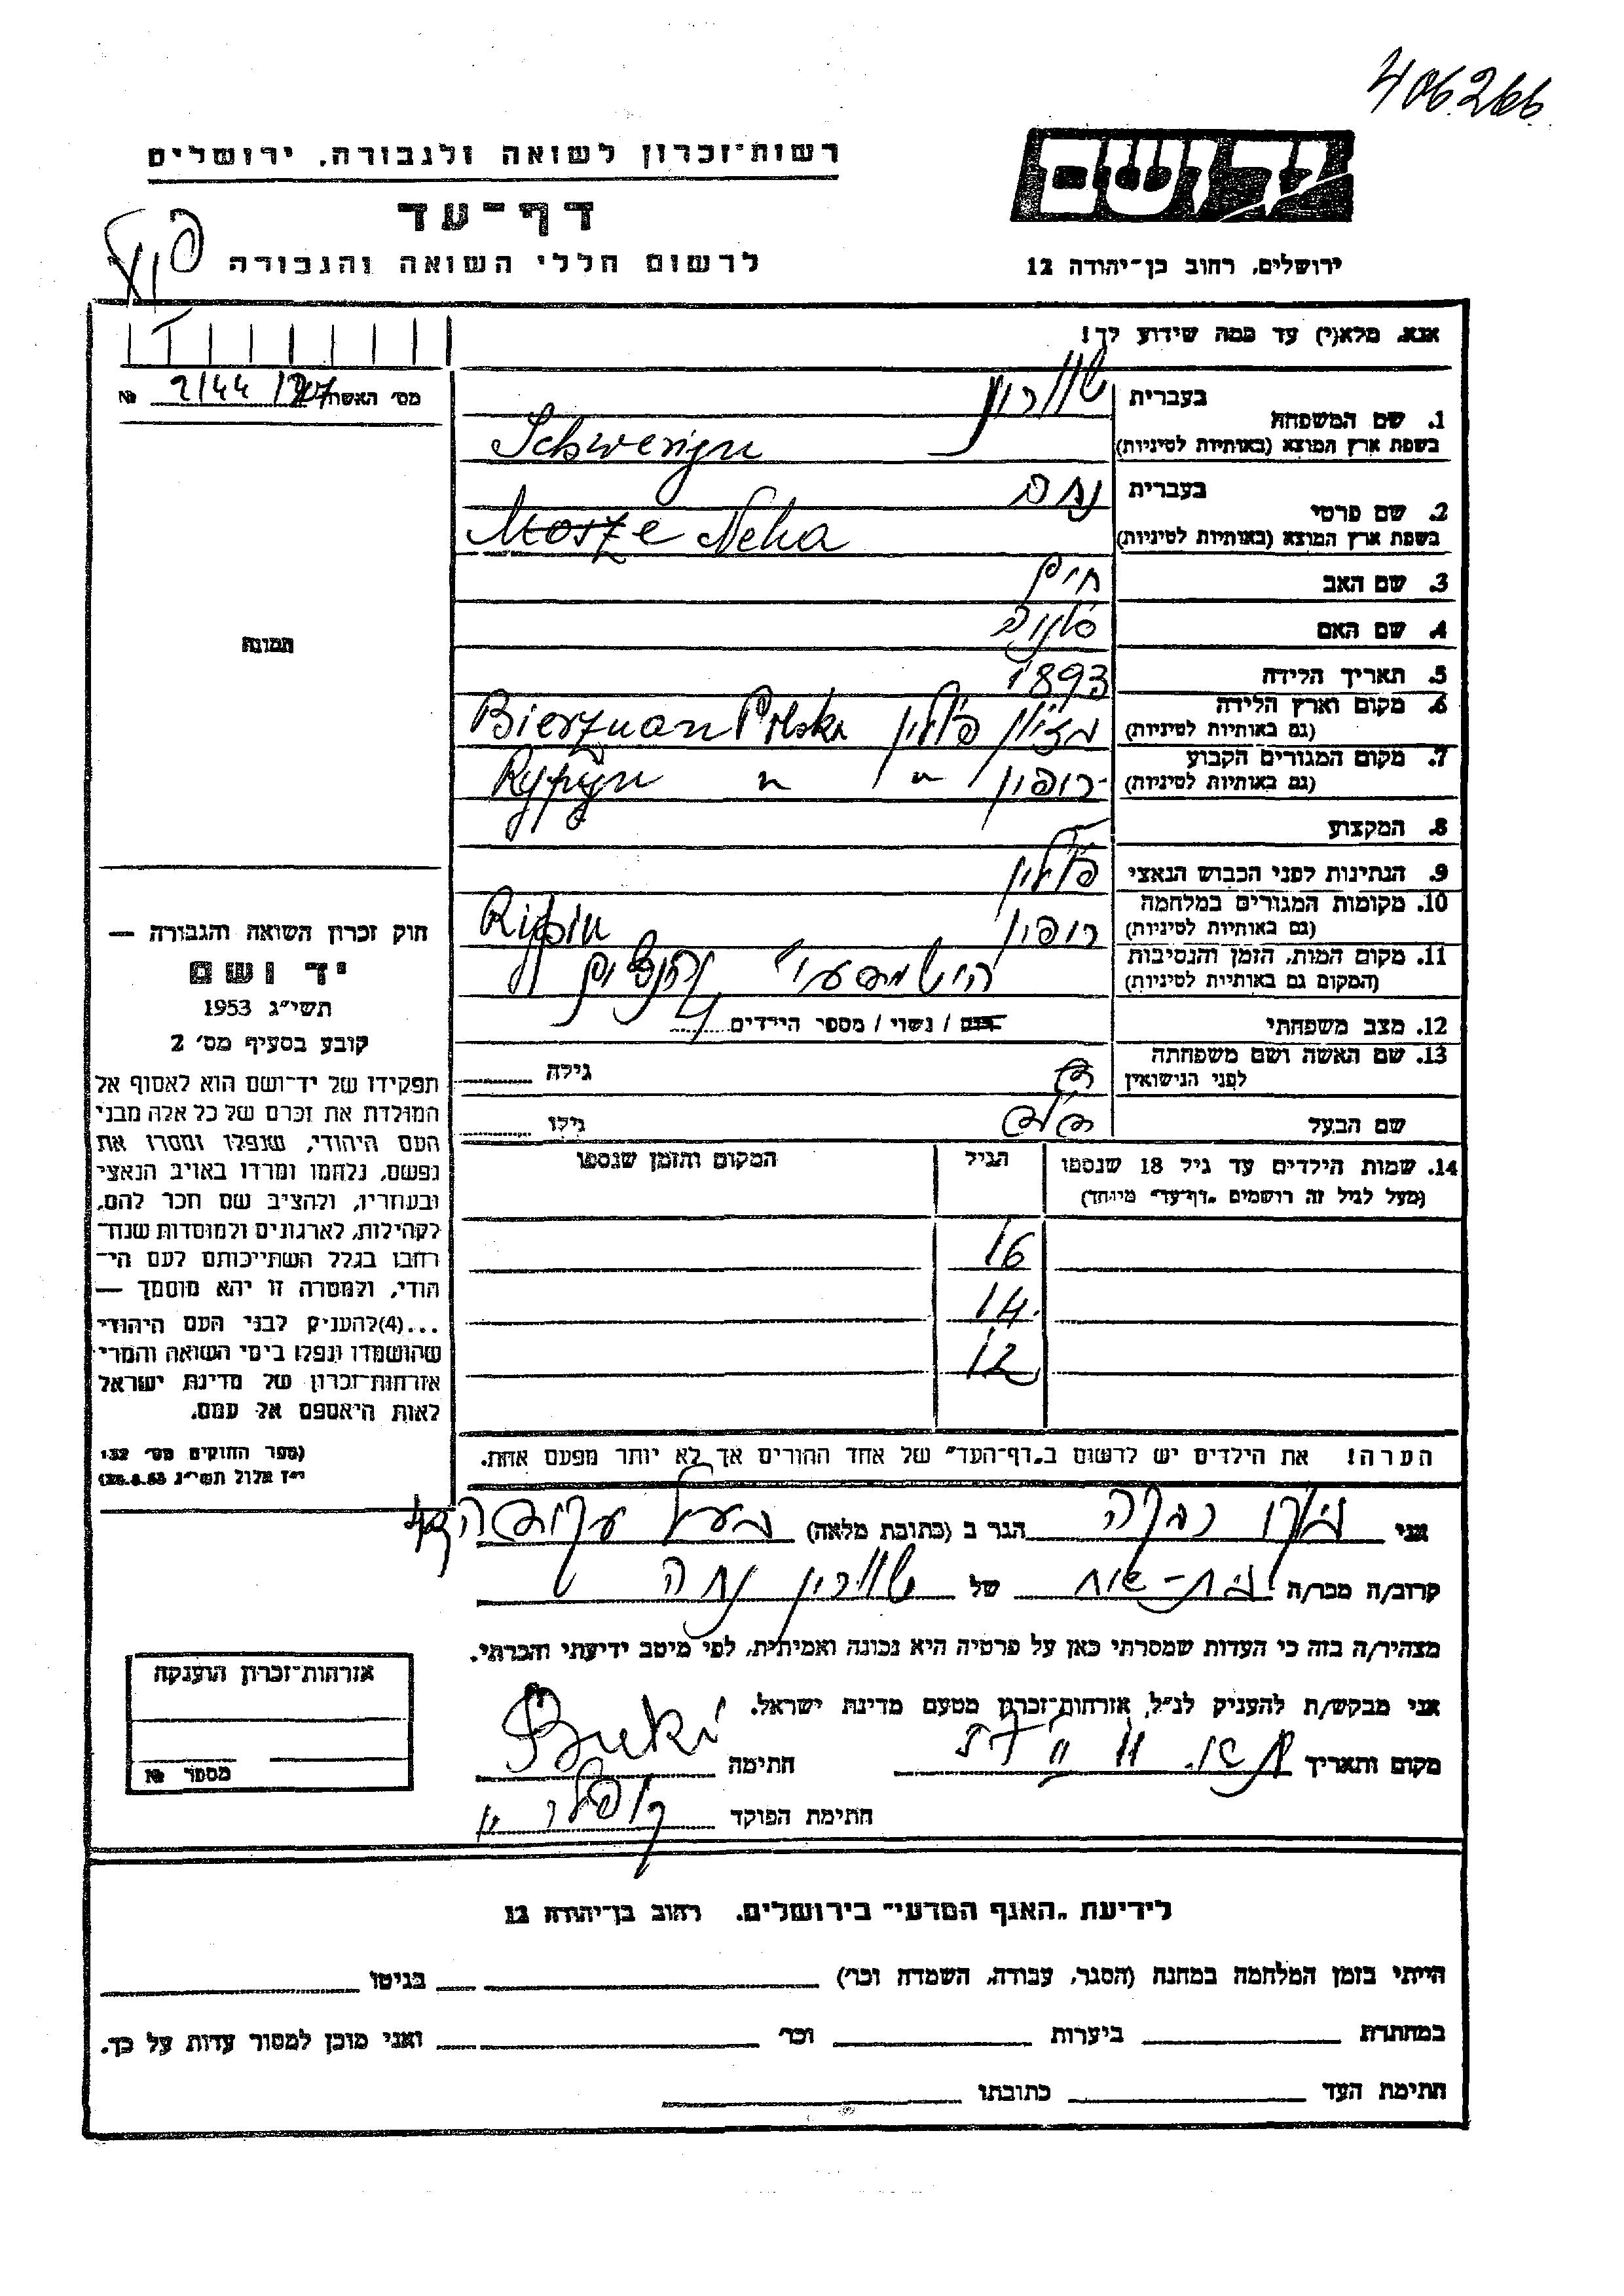 406266
רשות־זכרון לשואה ולגבורה, ירושלים
דף־עד
לרשום חללי השואה והגבורה
יד ושם
ירושלים, רחוב בן־יהודה 12
אנא, מלא(י) עד כמה שידוע לך!
מס׳ האשה №
1. שם המשפחה
בעברית
בשפת ארץ המוצא (באותיות לטיניות)
Schweryn
2. שם פרטי
בעברית
בשפת ארץ המוצא (באותיות לטיניות)
Mosze Neha
3. שם האב חיים
4. שם האם
5. תאריך הלידה 1893
6. מקום וארץ הלידה
(גם באותיות לטיניות)
פולין Bierzuan Polska
7. מקום המגורים הקבוע
(גם באותיות לטיניות)
ריפין " " Rypijn
8. המקצוע
9. הנתינות לפני הכבוש הנאצי
פולין
10. מקומות המגורים במלחמה
(גם באותיות לטיניות)
ריפין Ripin
11. מקום המות, הזמן והנסיבות
(המקום גם באותיות לטיניות)
12. מצב משפחתי
רוק / נשוי / מספר הילדים
13. שם האשה ושם משפחתה
לפני הנישואין
גילה
שם הבעל
גילו
14. שמות הילדים עד גיל 18 שנספו
(מעל לגיל זה רושמים „דף־עד״ מיוחד)
הגיל
המקום והזמן שנספו
16
14
12
הערה! את הילדים יש לרשום ב„דף־העד״ של אחד ההורים אך לא יותר מפעם אחת.
תמונה
חוק זכרון השואה והגבורה —
יד ושם
תשי״ג 1953
קובע בסעיף מס׳ 2
תפקידו של יד־ושם הוא לאסוף אל
המולדת את זכרם של כל אלה מבני
העם היהודי, שנפלו ומסרו את
נפשם, נלחמו ומרדו באויב הנאצי
ובעוזריו, ולהציב שם וזכר להם,
לקהילות, לארגונים ולמוסדות שנח־
רבו בגלל השתייכותם לעם הי־
הודי, ולמטרה זו יהא מוסמך —
...(4) להעניק לבני העם היהודי
שהושמדו ונפלו בימי השואה והמרי
אזרחות־זכרון של מדינת ישראל
לאות היאספם אל עמם.
(ספר החוקים מס׳ 132
י״ז אלול תשי״ג 28.8.53)
אני רבקה הגר ב (כתובת מלאה)
קרוב/ה מכר/ה בת-אח של שוורין נחה
מצהיר/ה בזה כי העדות שמסרתי כאן על פרטיה היא נכונה ואמיתית, לפי מיטב ידיעתי והכרתי.
אני מבקש/ת להעניק לנ״ל, אזרחות־זכרון מטעם מדינת ישראל.
מקום ותאריך
חתימה
חתימת הפוקד
אזרחות־זכרון הוענקה
מספר №
לידיעת „האגף המדעי״ בירושלים, רחוב בן־יהודה 12
הייתי בזמן המלחמה במחנה (הסגר, עבודה, השמדה וכו׳) בגיטו
במחתרת ביערות וכו׳ ואני מוכן למסור עדות על כך.
חתימת העד כתובתו